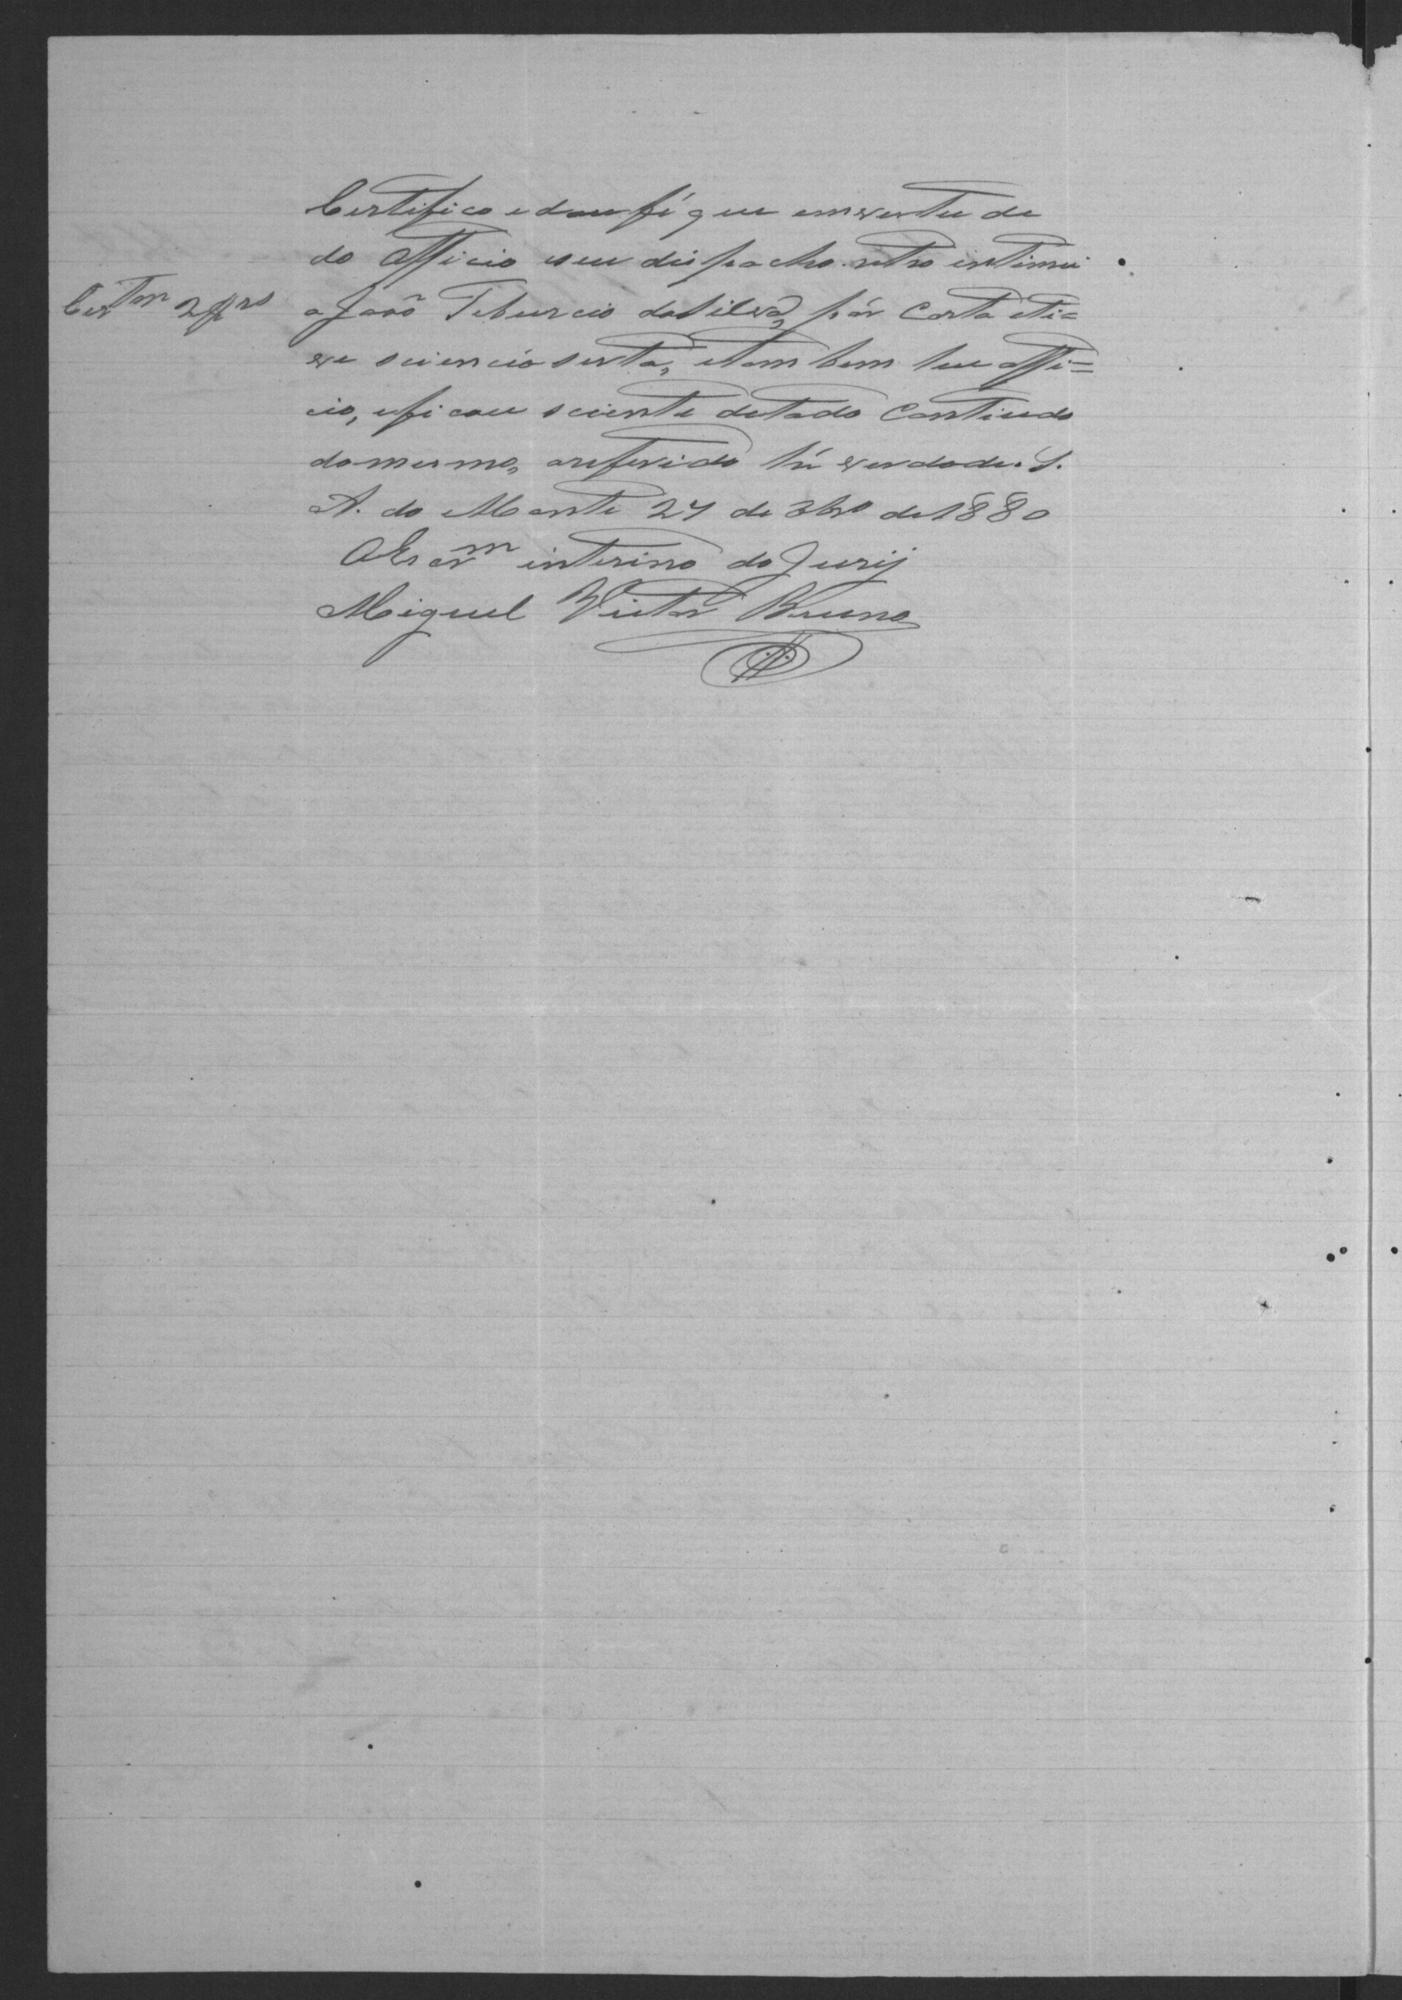 Certifico e dou fé que em vertude
do officio e seu dispacho retro intimei
a João Teburcio da Silva, pár Carta e ti=
ve sciencia serta, e tam bem leu o offi=
cio, e ficou sciente de todo Contiudo
do mesmo, o referido hé verdade. S.
A. do Monte 27 de 9bro de 1880
O Escrm interino do Jurij
Miguel Victor Bruno